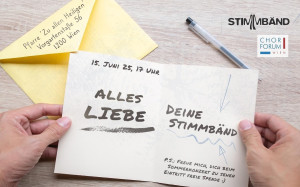 Pfarre "Zu allen Heiligen"
Vorgartenstraße 56
1200 Wien
STIMMBÄND
CHOR
FORUM
WIEN
15. JUNI 25, 17 UHR
ALLES
LIEBE
DEINE
STIMMBÄND
P.S. FREUE MICH, DICH BEIM
SOMMERKONZERT ZU SEHEN
EINTRITT FREIE SPENDE :)